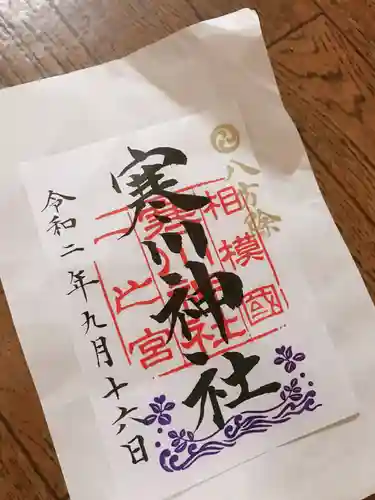 八方除
相模國
寒川神社
一之宮
寒川神社
令和二年九月十六日